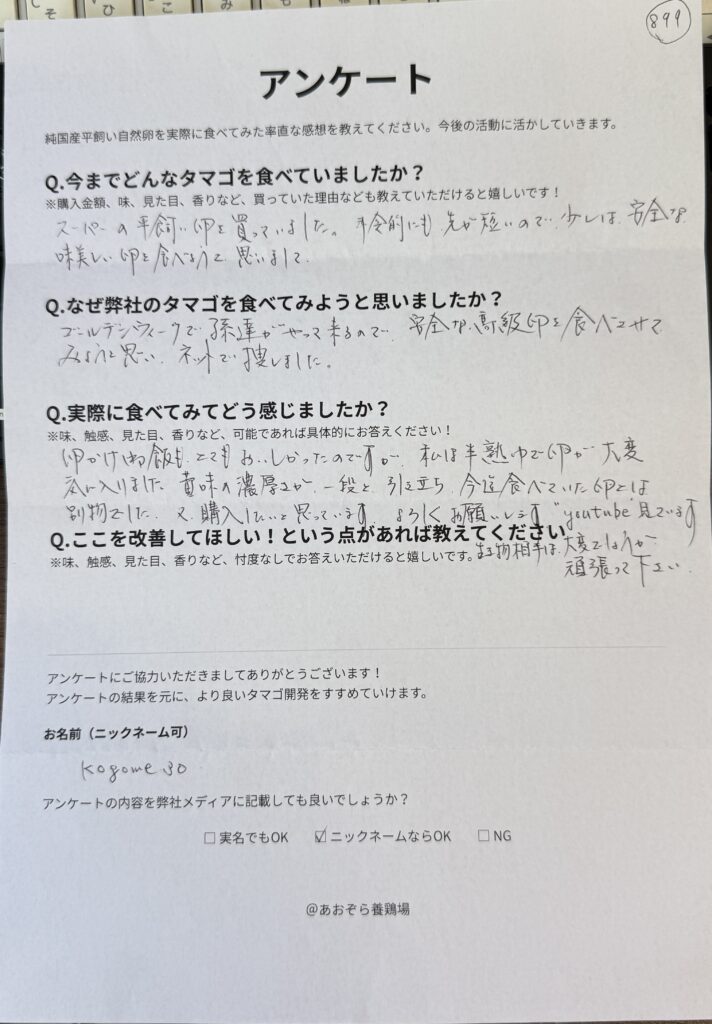 899
アンケート
純国産平飼い自然卵を実際に食べてみた率直な感想を教えてください。今後の活動に活かしていきます。
Q.今までどんなタマゴを食べていましたか？
※購入金額、味、見た目、香りなど、買っていた理由なども教えていただけると嬉しいです！
スーパーの平飼い卵を買っていました。年令的にも先が短いので、少しは、安全な
味美しい卵を食べようと思いまして、
Q.なぜ弊社のタマゴを食べてみようと思いましたか？
ゴールデンウィークで孫達がやって来るので、安全な、高級卵を食べさせて
みようと思い、ネットで捜しました。
Q.実際に食べてみてどう感じましたか？
※味、触感、見た目、香りなど、可能であれば具体的にお答えください！
卵かけ御飯も、とてもおいしかったのですが、私は半熟ゆで卵が大変
気に入りました 黄味の濃厚さが、一段と、引き立ち、今迄食べていた卵とは
別物でした、又、購入したいと思っています よろしくお願いします "youtube"見ています
Q.ここを改善してほしい！という点があれば教えてください
生き物相手は、大変でしょうが
※味、触感、見た目、香りなど、忖度なしでお答えいただけると嬉しいです。
頑張って下さい、
アンケートにご協力いただきましてありがとうございます！
アンケートの結果を元に、より良いタマゴ開発をすすめていけます。
お名前（ニックネーム可）
kogome 30
アンケートの内容を弊社メディアに記載しても良いでしょうか？
□ 実名でもOK ☑ ニックネームならOK □ NG
@あおぞら養鶏場